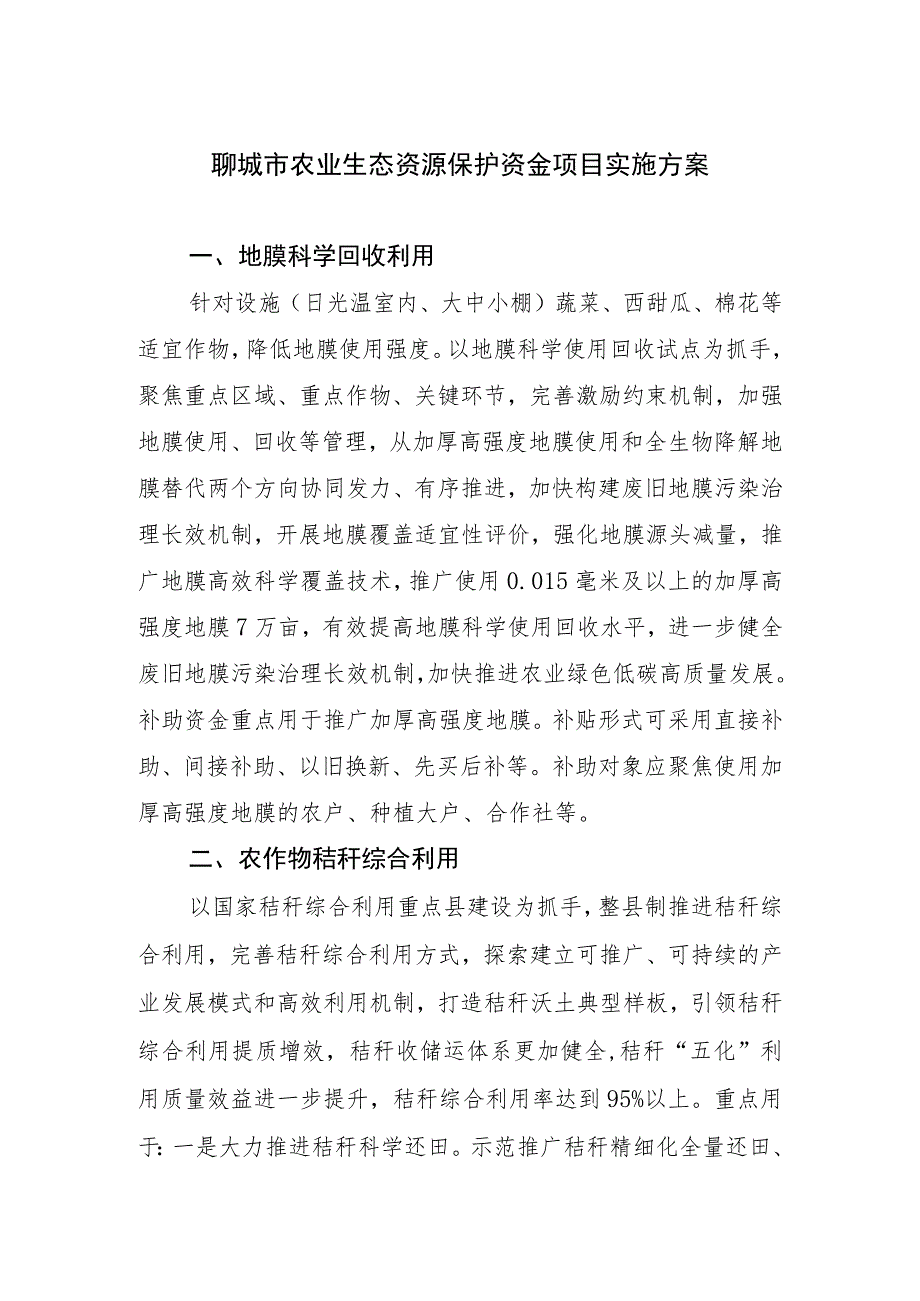 聊城市农业生态资源保护资金项目实施方案
一、地膜科学回收利用
针对设施（日光温室内、大中小棚）蔬菜、西甜瓜、棉花等
适宜作物,降低地膜使用强度。以地膜科学使用回收试点为抓手,
聚焦重点区域、重点作物、关键环节，完善激励约束机制，加强
地膜使用、回收等管理，从加厚高强度地膜使用和全生物降解地
膜替代两个方向协同发力、有序推进，加快构建废旧地膜污染治
理长效机制，开展地膜覆盖适宜性评价，强化地膜源头减量，推
广地膜高效科学覆盖技术,推广使用 0.015 毫米及以上的加厚高
强度地膜 7 万亩，有效提高地膜科学使用回收水平，进一步健全
废旧地膜污染治理长效机制,加快推进农业绿色低碳高质量发展。
补助资金重点用于推广加厚高强度地膜。补贴形式可采用直接补
助、间接补助、以旧换新、先买后补等。补助对象应聚焦使用加
厚高强度地膜的农户、种植大户、合作社等。
二、农作物秸秆综合利用
以国家秸秆综合利用重点县建设为抓手,整县制推进秸秆综
合利用，完善秸秆综合利用方式，探索建立可推广、可持续的产
业发展模式和高效利用机制，打造秸秆沃土典型样板，引领秸秆
综合利用提质增效，秸秆收储运体系更加健全,秸秆“五化”利
用质量效益进一步提升，秸秆综合利用率达到 95%以上。重点用
于: 一是大力推进秸秆科学还田。示范推广秸秆精细化全量还田、